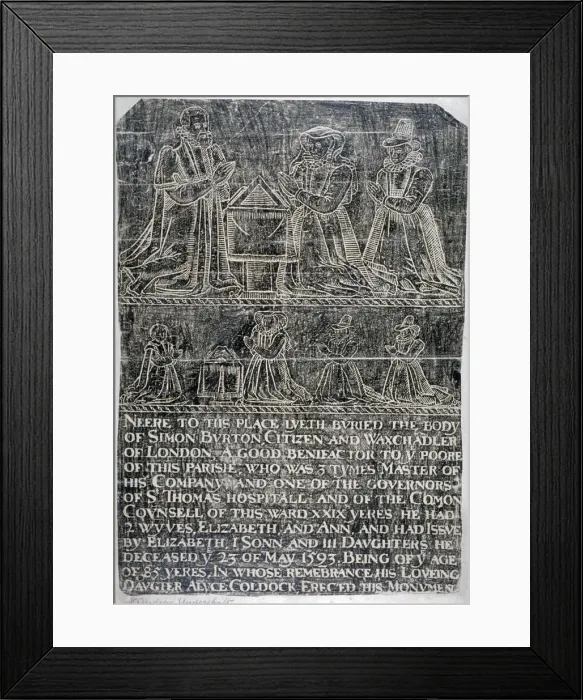 NEERE TO THIS PLACE LYETH BVRIED THE BODY
OF SIMON BVRTON CITIZEN AND WAXCHADLER
OF LONDON, A GOOD BENIEFACTOR TO Y POORE
OF THIS PARISH, WHO WAS 3 TYMES MASTER OF
HIS COMPANY AND ONE OF THE GOVERNORS
OF S THOMAS HOSPITALL: AND OF THE COMON
COVNSELL OF THIS WARD XXIX YERES. HE HAD
2 WYVES, ELIZABETH, AND ANN, AND HAD ISSVE
BY ELIZABETH I SONN AND III DAVGHTERS. HE
DECEASED Y 23 OF MAY 1593. BEING OF Y AGE
OF 85 YERES. IN WHOSE REMEBRANCE HIS LOVEING
DAVGTER ALYCE COLDOCK ERECTED THIS MONVMENT